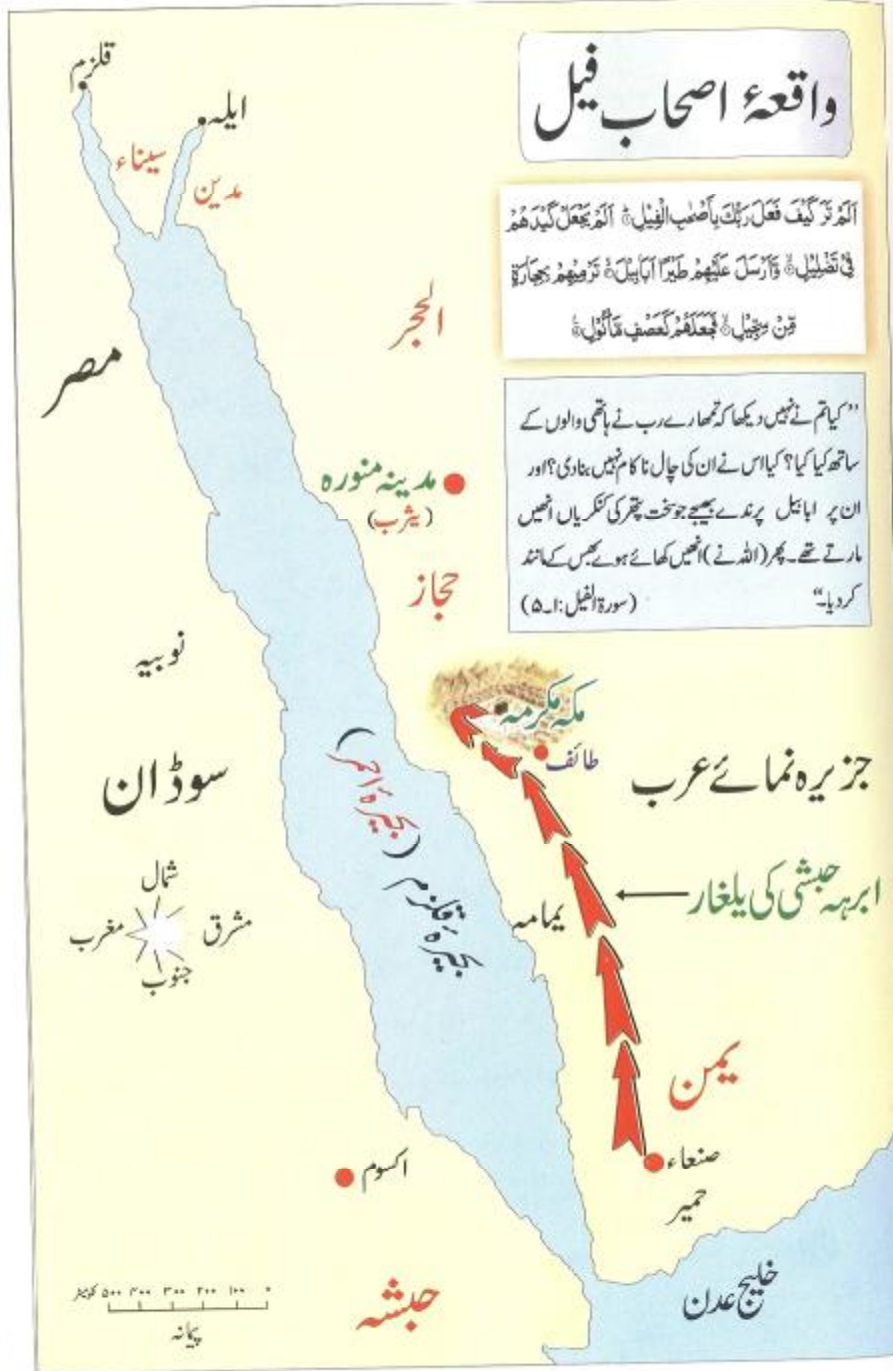 واقعۂ اصحاب فیل
اَلَمْ تَرَ كَيْفَ فَعَلَ رَبُّكَ بِأَصْحٰبِ الْفِيْلِ ۞ اَلَمْ يَجْعَلْ كَيْدَهُمْ
فِيْ تَضْلِيْلٍ ۞ وَّاَرْسَلَ عَلَيْهِمْ طَيْرًا اَبَابِيْلَ ۞ تَرْمِيْهِمْ بِحِجَارَةٍ
مِّنْ سِجِّيْلٍ ۞ فَجَعَلَهُمْ كَعَصْفٍ مَّأْكُوْلٍ ۞
”کیا تم نے نہیں دیکھا کہ تمھارے رب نے ہاتھی والوں کے
ساتھ کیا کیا؟ کیا اس نے ان کی چال ناکام نہیں بنا دی؟ اور
ان پر ابابیل پرندے بھیجے جو سخت پتھر کی کنکریاں انھیں
مارتے تھے۔ پھر (اللہ نے) انھیں کھائے ہوئے بھس کے مانند
کر دیا۔“ (سورۃ الفیل: ۱۔۵)
قلزم
ایلہ
سیناء
مدین
الحجر
مصر
مدینہ منورہ
(یثرب)
حجاز
نوبیہ
مکہ مکرمہ
طائف
جزیرہ نمائے عرب
سوڈان
بحیرۂ قلزم (بحیرۂ احمر)
ابرہہ حبشی کی یلغار
یمامہ
شمال
مشرق
مغرب
جنوب
یمن
صنعاء
حمیر
اکسوم
حبشہ
خلیج عدن
۰ ۱۰۰ ۲۰۰ ۳۰۰ ۴۰۰ ۵۰۰ کلومیٹر
پیمانہ